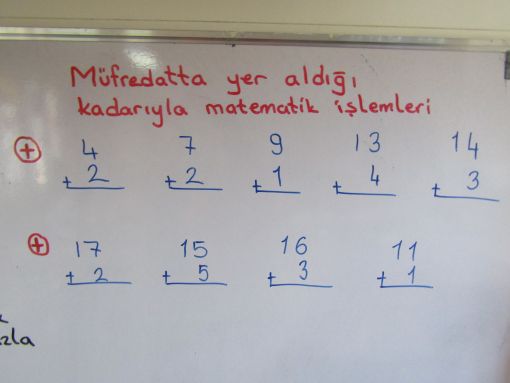 Müfredatta yer aldığı
kadarıyla matematik işlemleri
+ 4 7 9 13 14
+ 2 + 2 + 1 + 4 + 3
+ 17 15 16 11
+ 2 + 5 + 3 + 1
zla